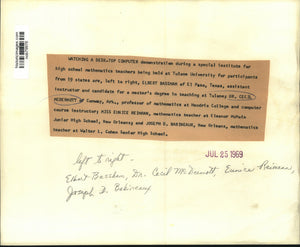 WATCHING A DESK-TOP COMPUTER demonstration during a special institute for
high school mathematics teachers being held at Tulane University for participants
from 19 states are, left to right, ELBERT BASSHAM of El Paso, Texas, assistant
instructor and candidate for a master's degree in teaching at Tulane; DR. CECIL
MCDERMOTT of Conway, Ark., professor of mathematics at Hendrix College and computer
course instructor; MISS EUNICE REIMANN, mathematics teacher at Eleanor McMain
Junior High School, New Orleans; and JOSEPH D. BABINEAUX, New Orleans, mathematics
teacher at Walter L. Cohen Senior High School.
JUL 25 1969
left to right -
Elbert Bassham, Dr. Cecil McDermott, Eunice Reimann,
Joseph D. Babineaux